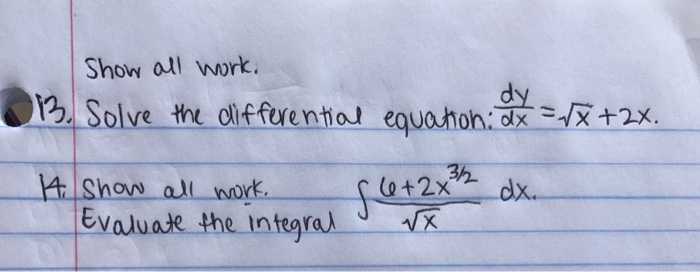 Show all work.
13. Solve the differential equation: dy/dx = √x + 2x.
14. Show all work.
Evaluate the integral ∫ (6+2x^3/2)/√x dx.